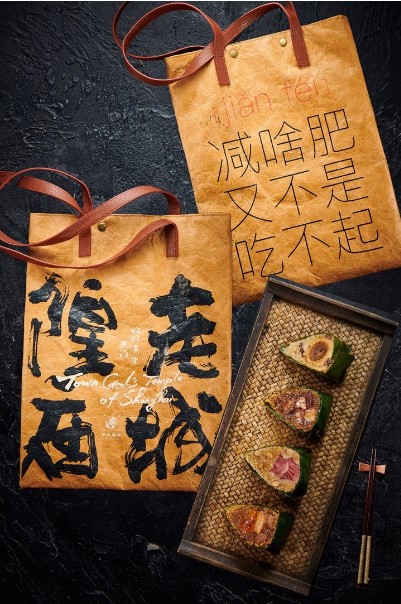 jiǎn
减啥肥
又不是
吃不起
走城
隍庙
Town God's Temple
of Shanghai